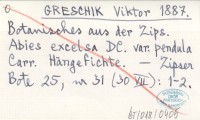 GRESCHIK Viktor 1887.
Botanisches aus der Zips.
Abies excelsa DC. var. pendula
Carr. Hängefichte. — Zipser
Bote 25, nr 31 (30 VII): 1-2.